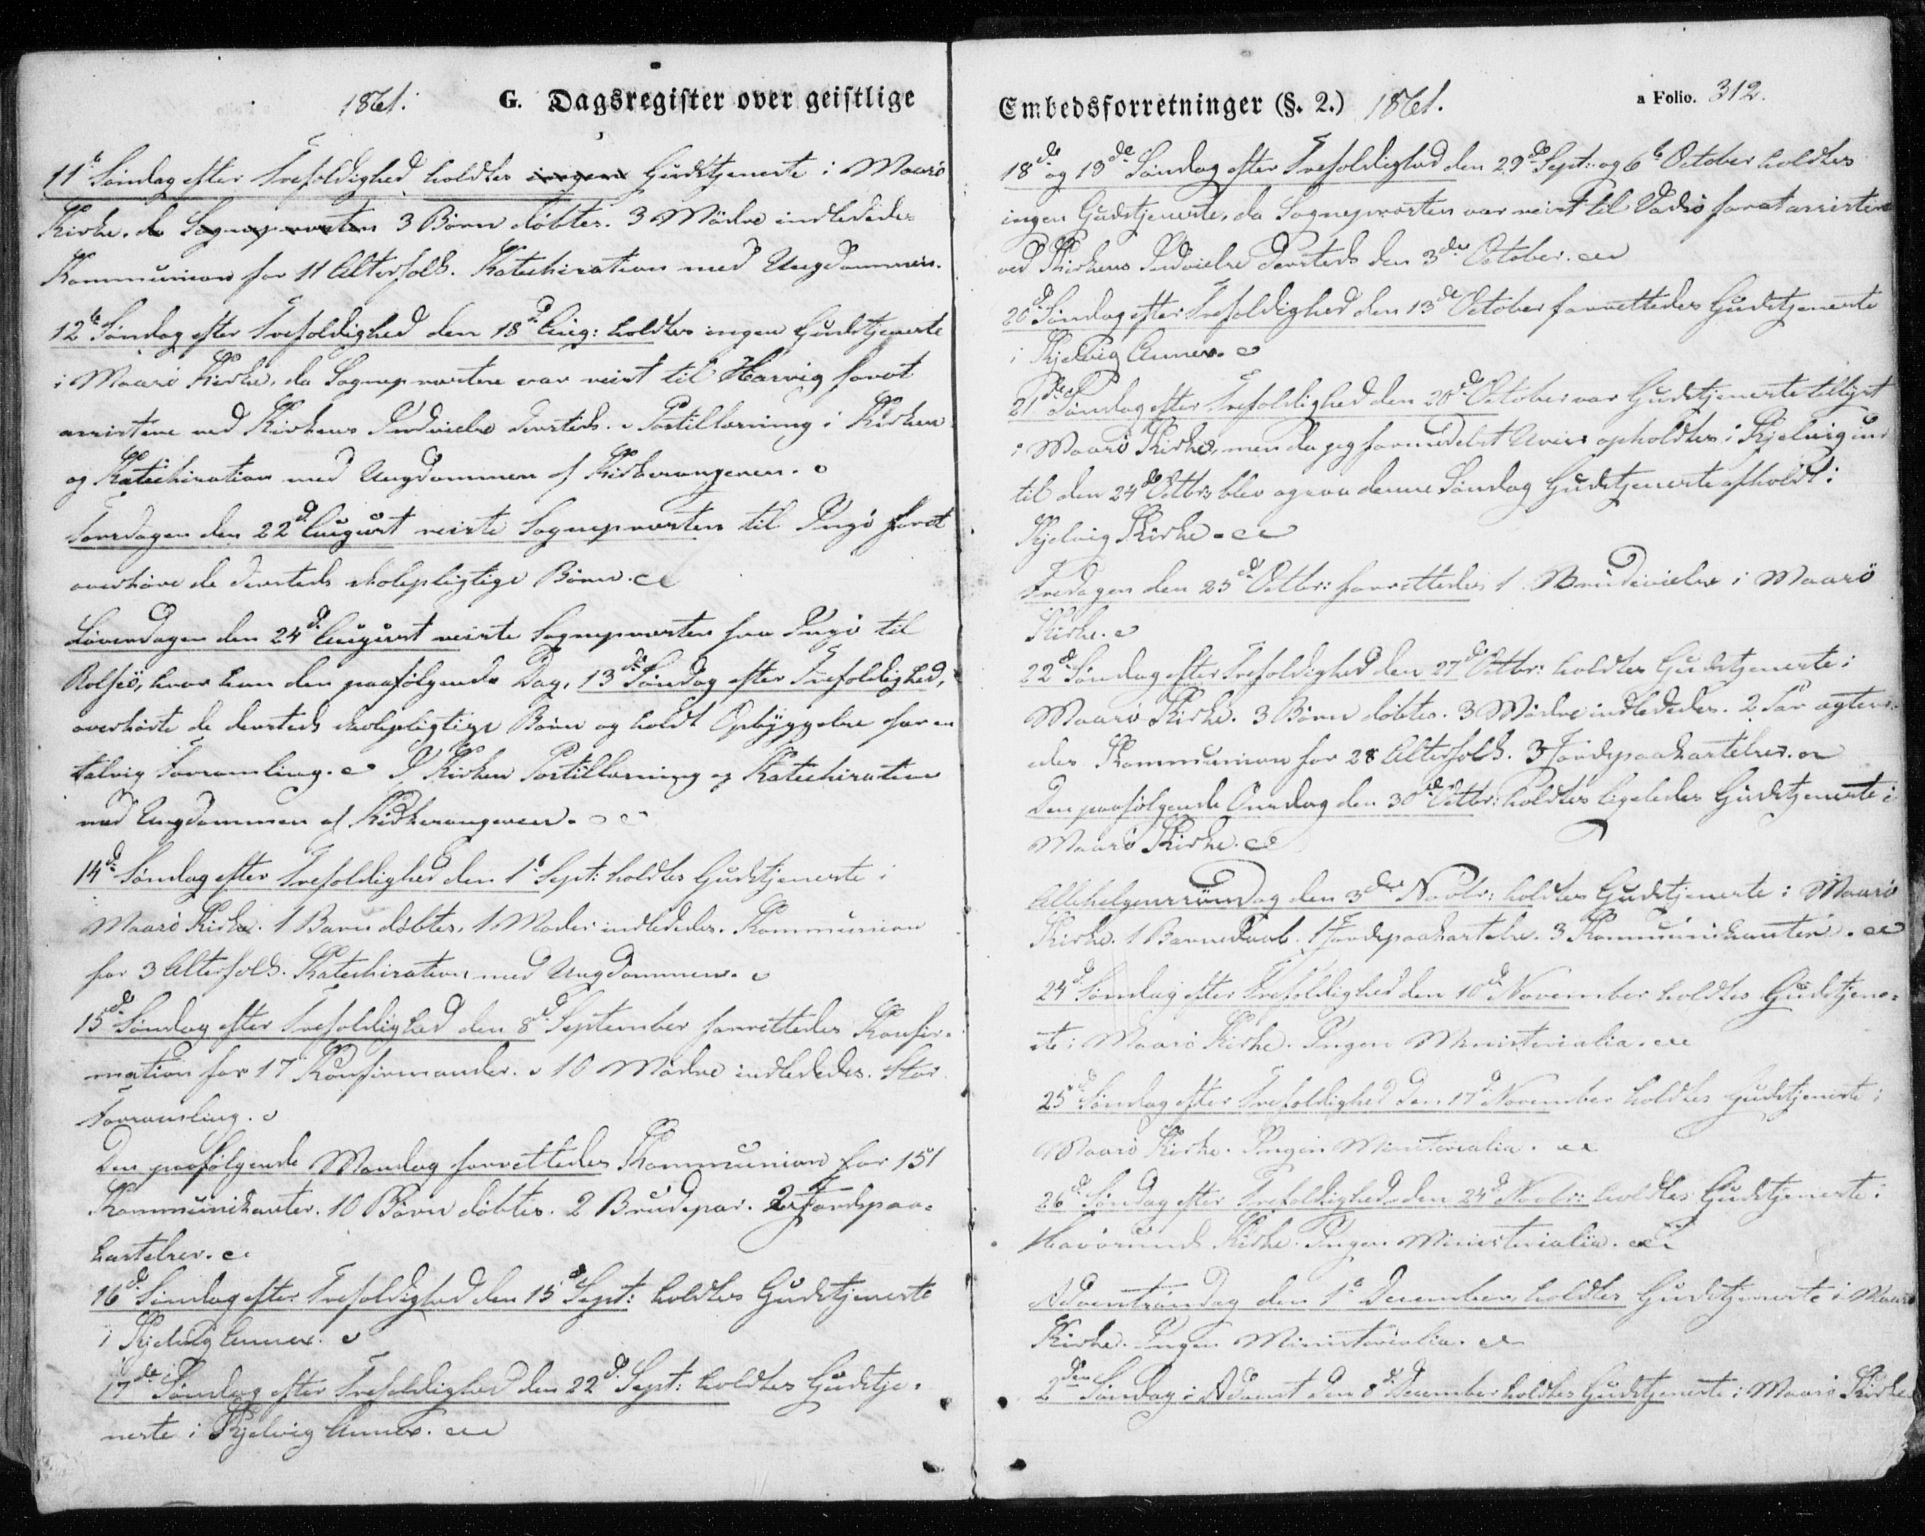 1861.
G. Dagsregister over geistlige
11te Søndag efter Trefoldighed holdtes ingen Gudstjeneste i Maasö
Kirke. da Sognepresten 3 Børn døbtes. 3 Mødre indlededes
Kommunion for 11 Altersfolk. Katechisation med Ungdommen.
12te Søndag efter Trefoldighed den 18de Aug: holdtes ingen Gudstjeneste
i Maasö Kirke, da Sognepresten var reist til Hasvig forat
assistere ved Kirkens Indvielse dersteds. Postillæsning i Kirken
og Katechisation med Ungdommen af Kirkesangeren.
Torsdagen den 22de August reiste Sognepresten til Ingö forat
overhöre de dersteds skolepligtige Börn.
Løverdagen den 24de August reiste Sognepresten fra Ingö til
Rolfsö, hvor han den paafølgende Dag, 13de Søndag efter Trefoldighed,
overhörte de dersteds skolepligtige Börn og holdt Opbyggelse for en
talrig Forsamling. I Kirken Postillæsning og Katechisation
med Ungdommen af Kirkesangeren.
14de Søndag efter Trefoldighed den 1ste Sept: holdtes Gudstjeneste i
Maasö Kirke. 1 Barn døbtes, 1 Moder indlededes. Kommunion
for 3 Altersfolk. Katechisation med Ungdommen.
15de Søndag efter Trefoldighed den 8de September forrettedes Konfir-
mation for 17 Konfirmander. 10 Mødre indlededes. Stor
Forsamling.
Den paafølgende Mandag forrettedes Kommunion for 151
Kommunikanter. 10 Börn døbtes. 2 Brudepar. 2 Jordspaa-
kastelser.
16de Søndag efter Trefoldighed den 15de Sept: holdtes Gudstjeneste
i Kjelvig Annex.
17de Søndag efter Trefoldighed den 22de Sept: holdtes Gudstje-
neste i Kjelvig Annex.
Embedsforretninger (§. 2.) 1861.
a Folio. 312.
18de og 19de Søndag efter Trefoldighed den 29de Sept: og 6te October holdtes
ingen Gudstjeneste, da Sognepresten var reist til Vadsö forat assistere
ved Kirkens Indvielse dersteds den 3die October.
20de Søndag efter Trefoldighed den 13de October forrettedes Gudstjeneste
i Kjelvig Annex.
21de Søndag efter Trefoldighed den 20de October var Gudstjeneste tillyst
i Maasö Kirke, men da jeg formedelst Uveir opholdtes i Kjelvig ind
til den 24de Octbr: blev ogsaa denne Søndag Gudstjeneste afholdt i
Kjelvig Kirke.
Fredagen den 25de Octbr: forrettedes 1 Brudevielse i Maasö
Kirke.
22de Søndag efter Trefoldighed den 27de Octbr: holdtes Gudstjeneste i
Maasö Kirke. 3 Börn døbtes. 3 Mødre indlededes. 2 Par ægtevi-
edes. Kommunion for 28 Altersfolk. 3 Jordspaakastelser.
Den paafølgende Onsdag den 30de Octbr: holdtes ligeledes Gudstjeneste i
Maasö Kirke.
Allehelgenssøndag den 3die Novbr: holdtes Gudstjeneste i Maasö
Kirke. 1 Barnedaab. 1 Jordspaakastelse. 3 Kommunikanter.
24de Søndag efter Trefoldighed den 10de November holdtes Gudstjene-
ste i Maasö Kirke. Ingen Ministerialia.
25de Søndag efter Trefoldighed den 17de November holdtes Gudstjeneste i
Maasö Kirke. Ingen Ministerialia.
26de Søndag efter Trefoldighed den 24de Novbr: holdtes Gudstjeneste i
Havösund Kirke. Ingen Ministerialia.
Adventssøndag den 1ste December holdtes Gudstjeneste i Maasö
Kirke. Ingen Ministerialia.
2den Søndag i Advent den 8de December holdtes Gudstjeneste i Maasö Kirke